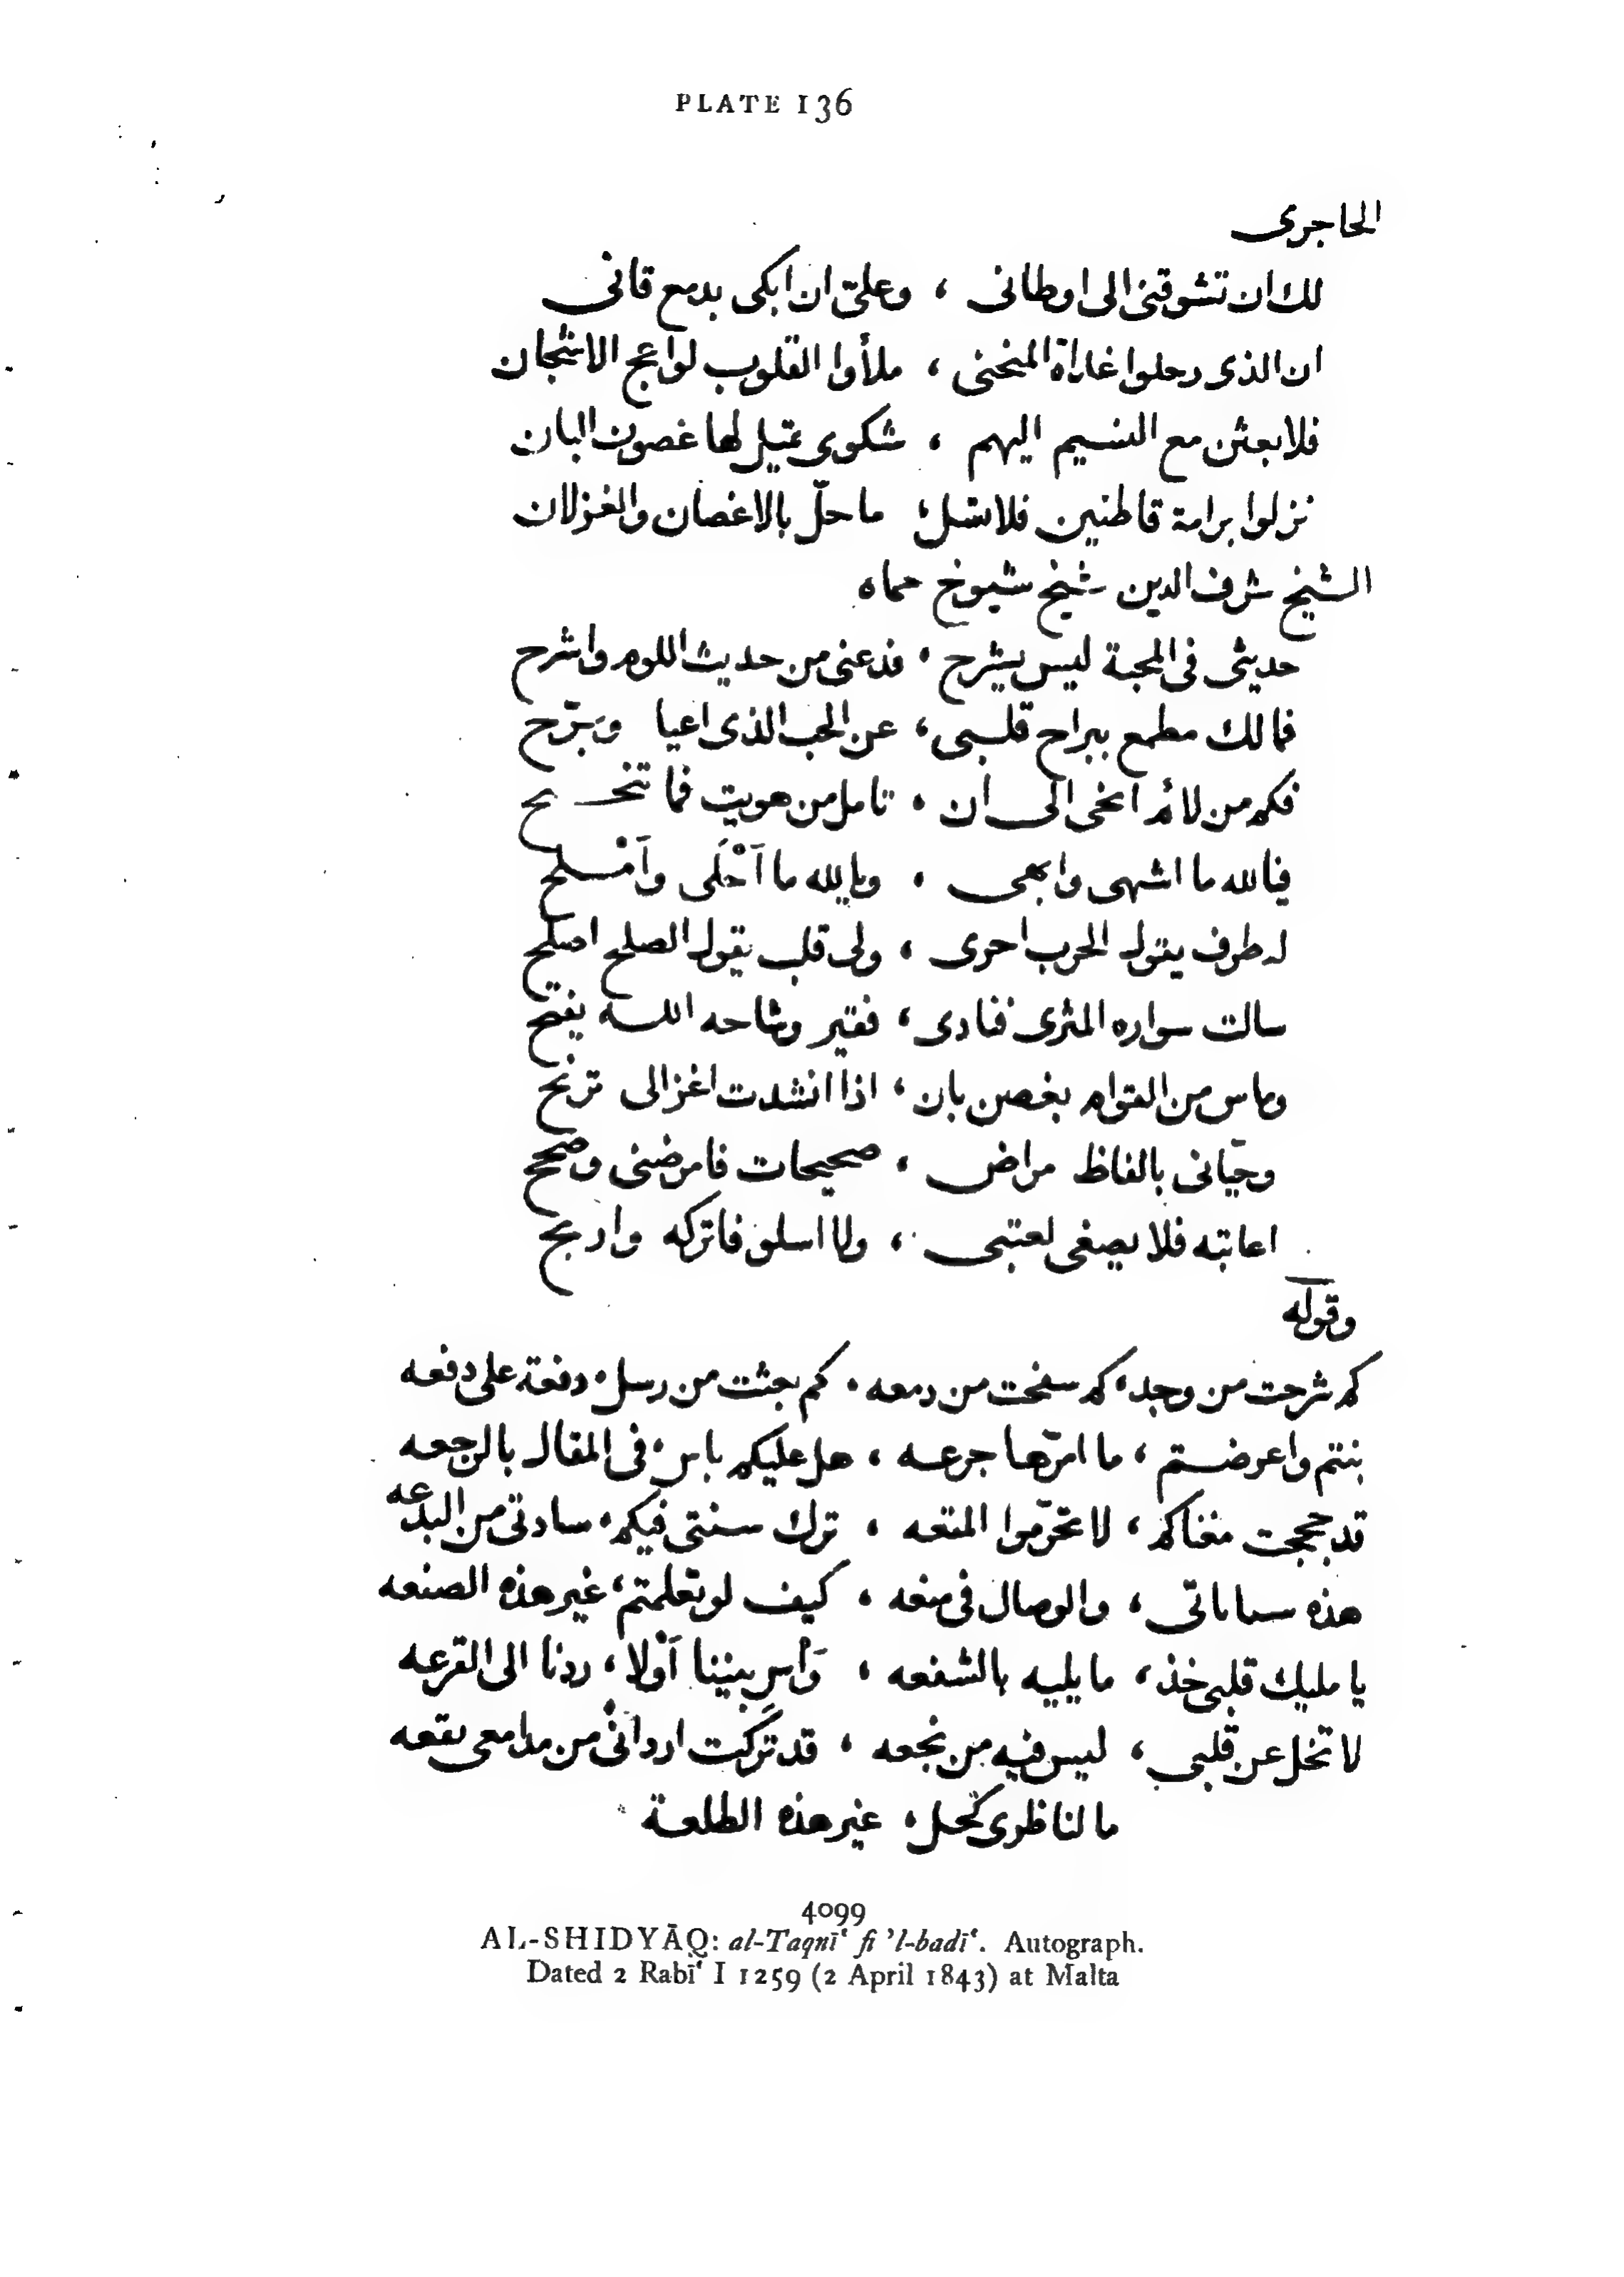 PLATE 136
الحاجرى
لك ان تشوقنى الى اوطانى ، وعلىّ ان ابكى بدمع قانى
ان الذى رحلوا غداة المنحنى ، ملأوا القلوب لواعج الاشجان
فلابعثن مع النسيم اليهم ، شكوى تميل لها غصون البان
نزلوا برامة قاطنين فلا تسل ، ما حلّ بالاغصان والغزلان
الشيخ شرف الدين شيخ شيوخ حماه
حديثى فى المحبة ليس يشرح ، فدعنى من حديث اللوم واشرح
فما لك مطمع ببراح قلبى ، عن الحب الذى اعيا وبَرّح
فكم من لائم انحى الى ان ، تامل من هويت فما تنحنح
فيالله ما اشهى وابهى ، ويالله ما آحْلَى وآمْلح
له طرف يقول الحرب احرى ، ولى قلب يقول الصلح اصلح
سالت سواره المثرى فنادى ، فقير وشاحه الله يفتح
وماس من القوام بغصن بان ، اذا انشدت اغزالى ترنح
وحيّانى بالفاظ مراض ، صحيحات فامرضنى وصحح
اعاتبه فلا يصغى لعتبى ، ولا اسلو فاتركه واربح
وقوله
كم شرحت من وجد ، كم سفحت من دمعه ، كم بعثت من رسل ، دفعة على دفعه
بنتم واعرضتم ، ما امرّها جرعه ، هل عليكم باس ، فى المقال بالرجعه
قد حججت مغناكم ، لا تحرّموا المتعه ، ترك سنتى فيكم ، سادتى من البدعه
هذه سااتى ، والوصال فى منعه ، كيف لو تعلمتم ، غير هذه الصنعه
يا مليك قلبى خذ ، ما يليه بالشفعه ، وَأْسِ بيننا آوْلا ، ردنا الى القرعه
لا تخل عن قلبى ، ليس فيه من نجعه ، قد تركت اردانى من مدامعى نقعه
ما لناظرى كحل ، غير هذه الطلعة
4099
AL-SHIDYĀQ: al-Taqnīʿ fi ’l-badīʿ. Autograph.
Dated 2 Rabīʿ I 1259 (2 April 1843) at Malta